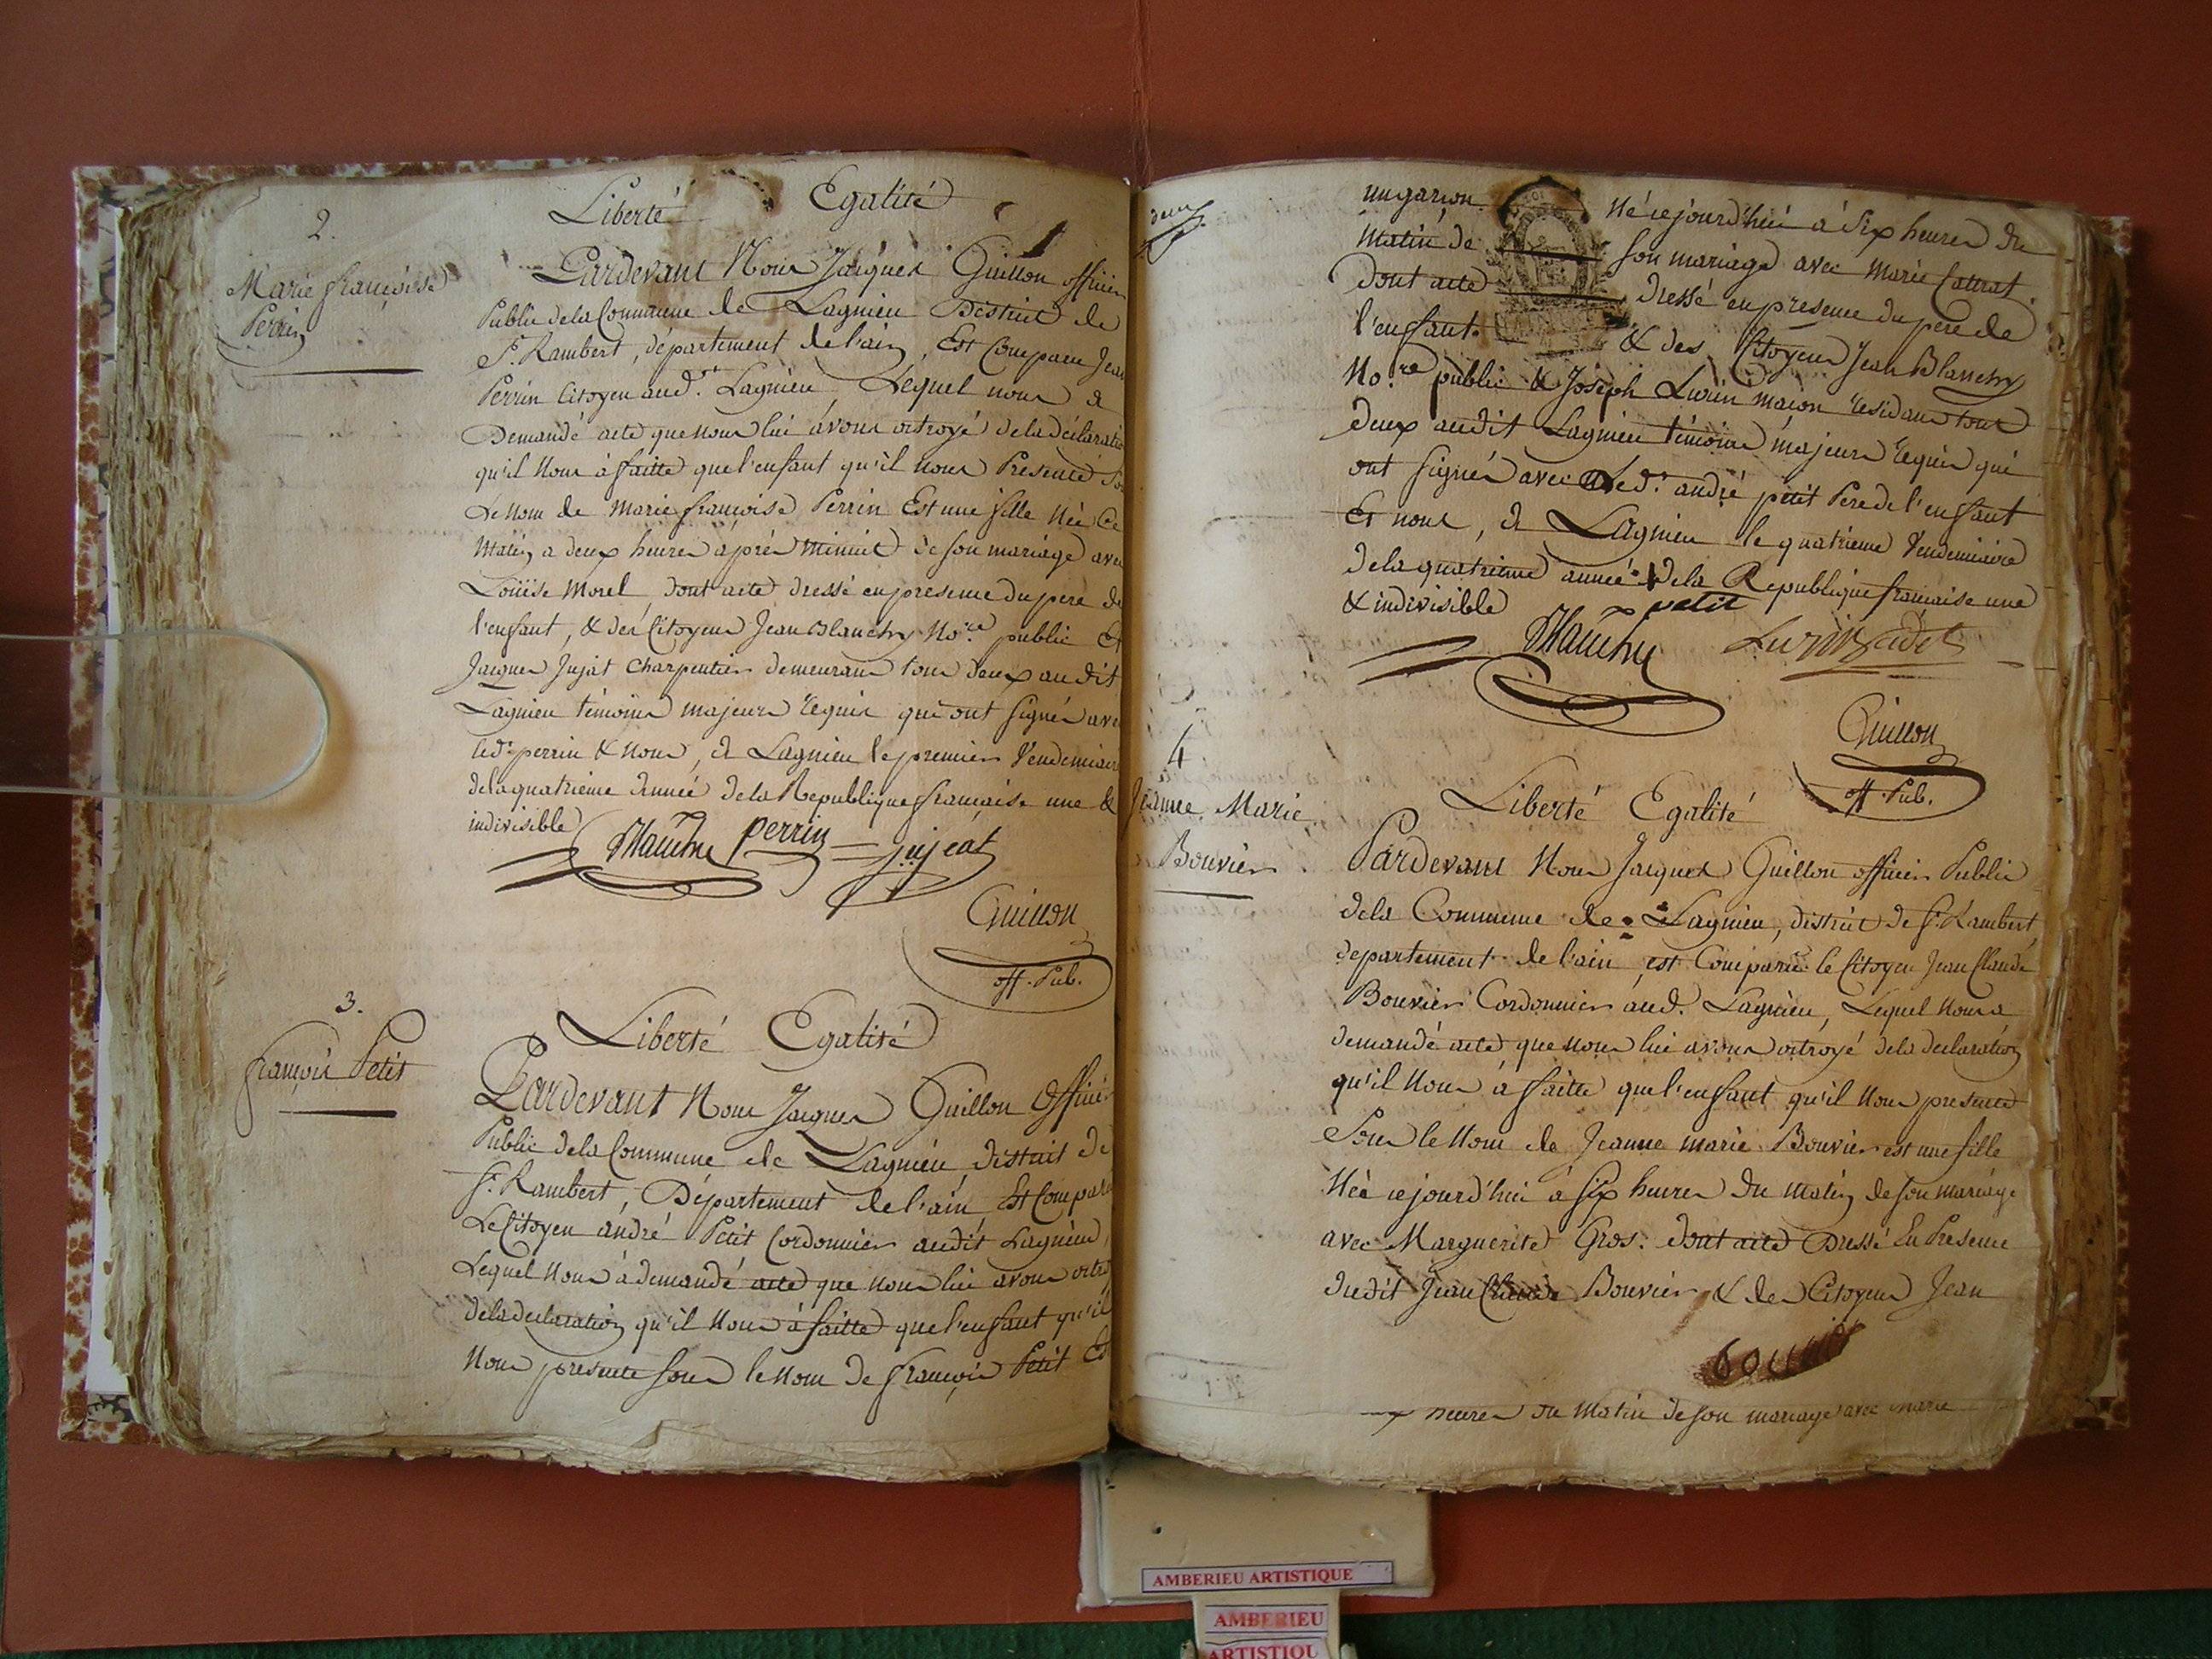 2.
Marie françoise
Perrin
Liberté Egalité
Pardevant Nous Jacques Guillon officier
Public de la Commune de Lagnieu District de
St. Rambert, département de l'ain, Est Comparu Jean
Perrin Citoyen aud.t Lagnieu, Lequel nous a
Demandé acte que nous lui avons octroyé de la déclaratio
qu'il Nous à faitte que l'enfant qu'il nous Presente So
Le nom de Marie françoise Perrin Est une fille Née Ce
Matin a deux heures après minuit de son mariage avec
Loüise Morel dont acte dressé en presence du pere de
l'enfant, & des Citoyens Jean Blanchy No.re public Et
Jacques Jujat Charpentier demeurans tous deux audit
Lagnieu témoins majeurs Requis qui ont signés avec
led.t perrin & nous, à Lagnieu le premier Vendemiaire
de la quatrieme Année de la Republique francaise une &
indivisible
Blanchy perrin jujeat
Guillon
off. Pub.
3.
françois Petit
Liberté Egalité
Pardevant Nous Jacques Guillon Officier
Public de la Commune de Lagnieu district de
St. Rambert, Département de l'ain Est Comparu
Le Citoyen andré Petit Cordonnier audit Lagnieu,
Lequel Nous à demandé acte que nous lui avons octro
de la declaration qu'il Nous à faitte que l'enfant qu'il
Nous presente sous le nom de françois Petit Est
deux
un garçon Né cejourd'hui à six heures du
Matin de son mariage avec Marie
dont acte dressé en presence du pere de
l'enfant & des Citoyens Jean Blanchy
No.re public & Joseph Lurin maçon residans tous
deux audit Lagnieu témoins majeurs requis qui
ont signés avec led.t andré petit Pere de l'enfant
Et nous, à Lagnieu le quatrieme Vendemiaire
de la quatrieme année de la Republique francaise une
& indivisible petit
Blanchy Lurin Cadet
Guillon
off. Pub.
4
Jeanne Marie
Bouvier
Liberté Egalité
Pardevant Nous Jacques Guillon officier Public
de la Commune de Lagnieu, district de St. Rambert,
departement de l'ain est Comparu le Citoyen Jean Claude
Bouvier Cordonnier aud. Lagnieu, Lequel Nous a
demandé acte que nous lui avons octroyé de la declaration
qu'il Nous à faitte que l'enfant qu'il Nous presente
Sous le Nom de Jeanne marie Bouvier est une fille
Née cejourd'hui à six heures du Matin de son mariage
avec Marguerite Gros. dont acte Dressé En Presence
dudit Jean Claude Bouvier & des Citoyens Jean
heures du Matin de son mariage avec marie
AMBERIEU ARTISTIQUE
AMBERIEU
ARTISTIQU